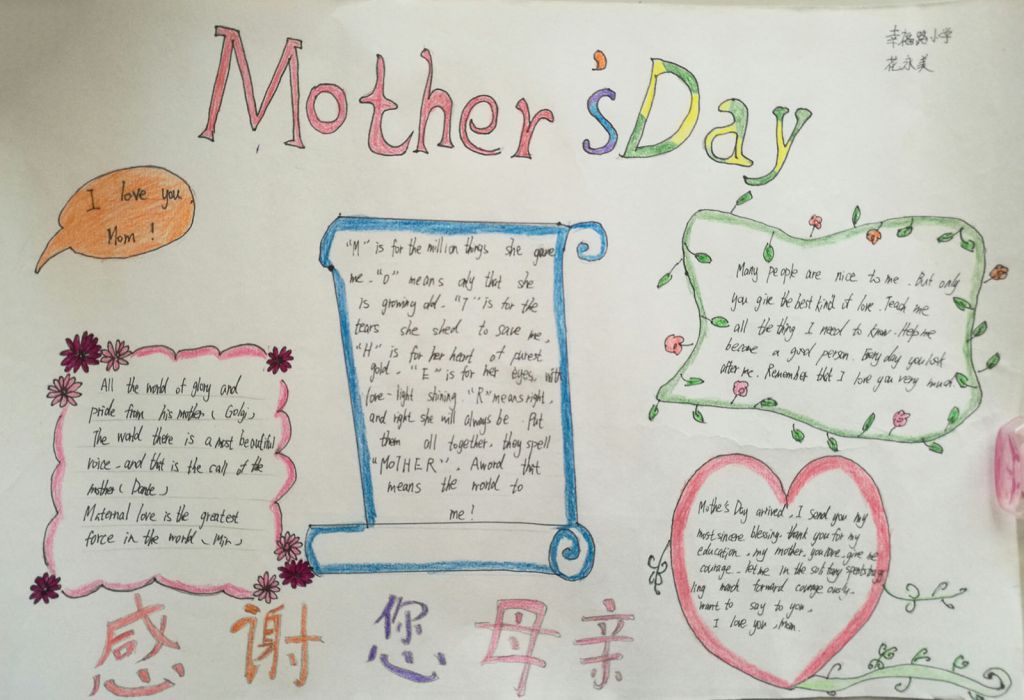 Mother's Day
幸福路小学
花永美
I love you
Mom !
"M" is for the million things she gave
me. "O" means only that she
is growing old. "T" is for the
tears she shed to save me.
"H" is for her heart of purest
gold. "E" is for her eyes, with
love-light shining. "R" means right,
and right she will always be. Put
them all together, they spell
"MOTHER". A word that
means the world to
me !
Many people are nice to me. But only
you give the best kind of love. Teach me
all the thing I need to know. Help me
become a good person. Every day you look
after me. Remember that I love you very much
All the world of glory and
pride from his mother (
The world there is a most beautiful
voice, and that is the call of the
mother ( Dante )
Maternal love is the greatest
force in the world (
Mother's Day arrived, I send you my
most sincere blessing, thank you for my
education, my mother, you give me
courage, let me in the solitary
ling march forward courage ously.
want to say to you,
I love you, Mom.
感谢您母亲